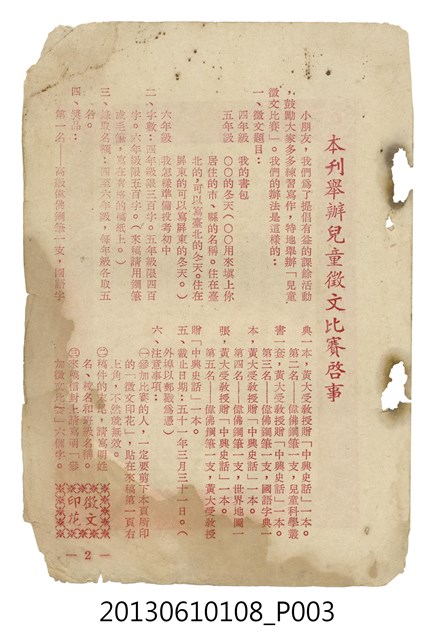 本刊舉辦兒童徵文比賽啓事
小朋友,我們爲了提倡有益的課餘活動
,鼓勵大家多多練習寫作,特地舉辦「兒童
徵文比賽」。我們的辦法是這樣的:
一、徵文題目:
四年級 我的書包
五年級 〇〇的冬天(〇〇用來塡上你
居住的市、縣的名稱。住在臺
北的,可以寫臺北的冬天。住在
屏東的可以寫屏東的冬天。)
六年級 我怎樣準備投考初中
二、字數:四年級限三百字。五年級限四百
字。六年級限五百字。(來稿請用鋼筆
或毛筆,寫在有格的稿紙上。)
三、錄取名額:四至六年級,每年級各取五
名。
四、獎品:
第一名——高級偉佛鋼筆一支,國語字
典一本,黃大受教授贈「中興史話」一本。
第二名——偉佛鋼筆一支,兒童科學叢
書一套,黃大受教授贈「中興史話」一本。
第三名——偉佛鋼筆一支,國語字典一
本,黃大受教授贈「中興史話」一本。
第四名——偉佛鋼筆一支,世界地圖一
張,黃大受教授贈「中興史話」一本。
第五名——偉佛鋼筆一支,黃大受教授
贈「中興史話」一本。
五、截止日期:五十一年三月三十一日。(
外埠以郵戳爲憑)
六、注意事項:
㈠參加比賽的人,一定要剪下本頁所印
的「徵文印花」,貼在來稿第一頁右
上角,不然就無效。
㈡稿件的末尾,請寫明姓
名、校名和班級名稱。
㈢來稿信封上請寫明「參
加徵文比賽」六個字。
徵文
印花
— 2 —
20130610108_P003